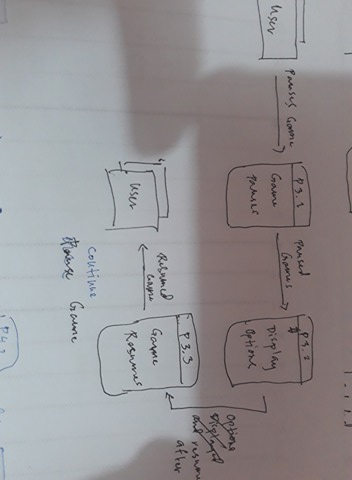 User
Pauses Game
P3.1
Game
Pauses
Paused
Games
P3.2
Display
Options
Options
Displayed
and resume
after
P3.3
Game
Resumes
Resumed
Game
User
Continue
Pause Game
P4.2